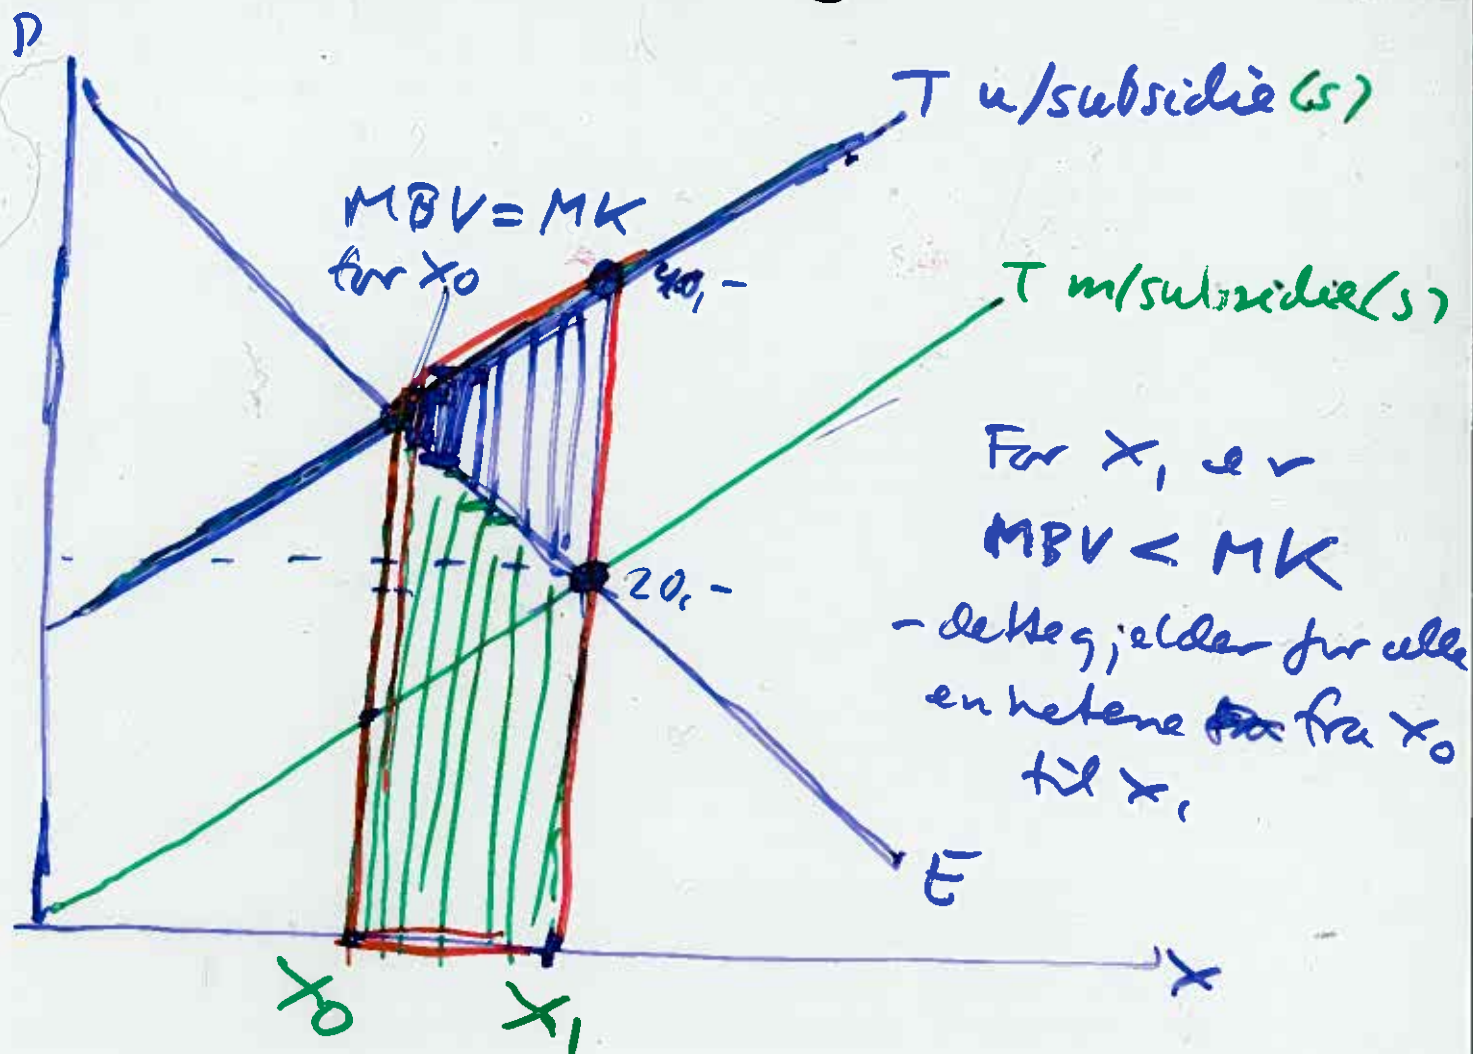 P
T u/subsidie (s)
MBV = MK
for X0
40,-
T m/subsidie(s)
For X1 er
MBV < MK
20,-
- dette gjelder for alle
enhetene fra X0
til X1
E
X
X0
X1